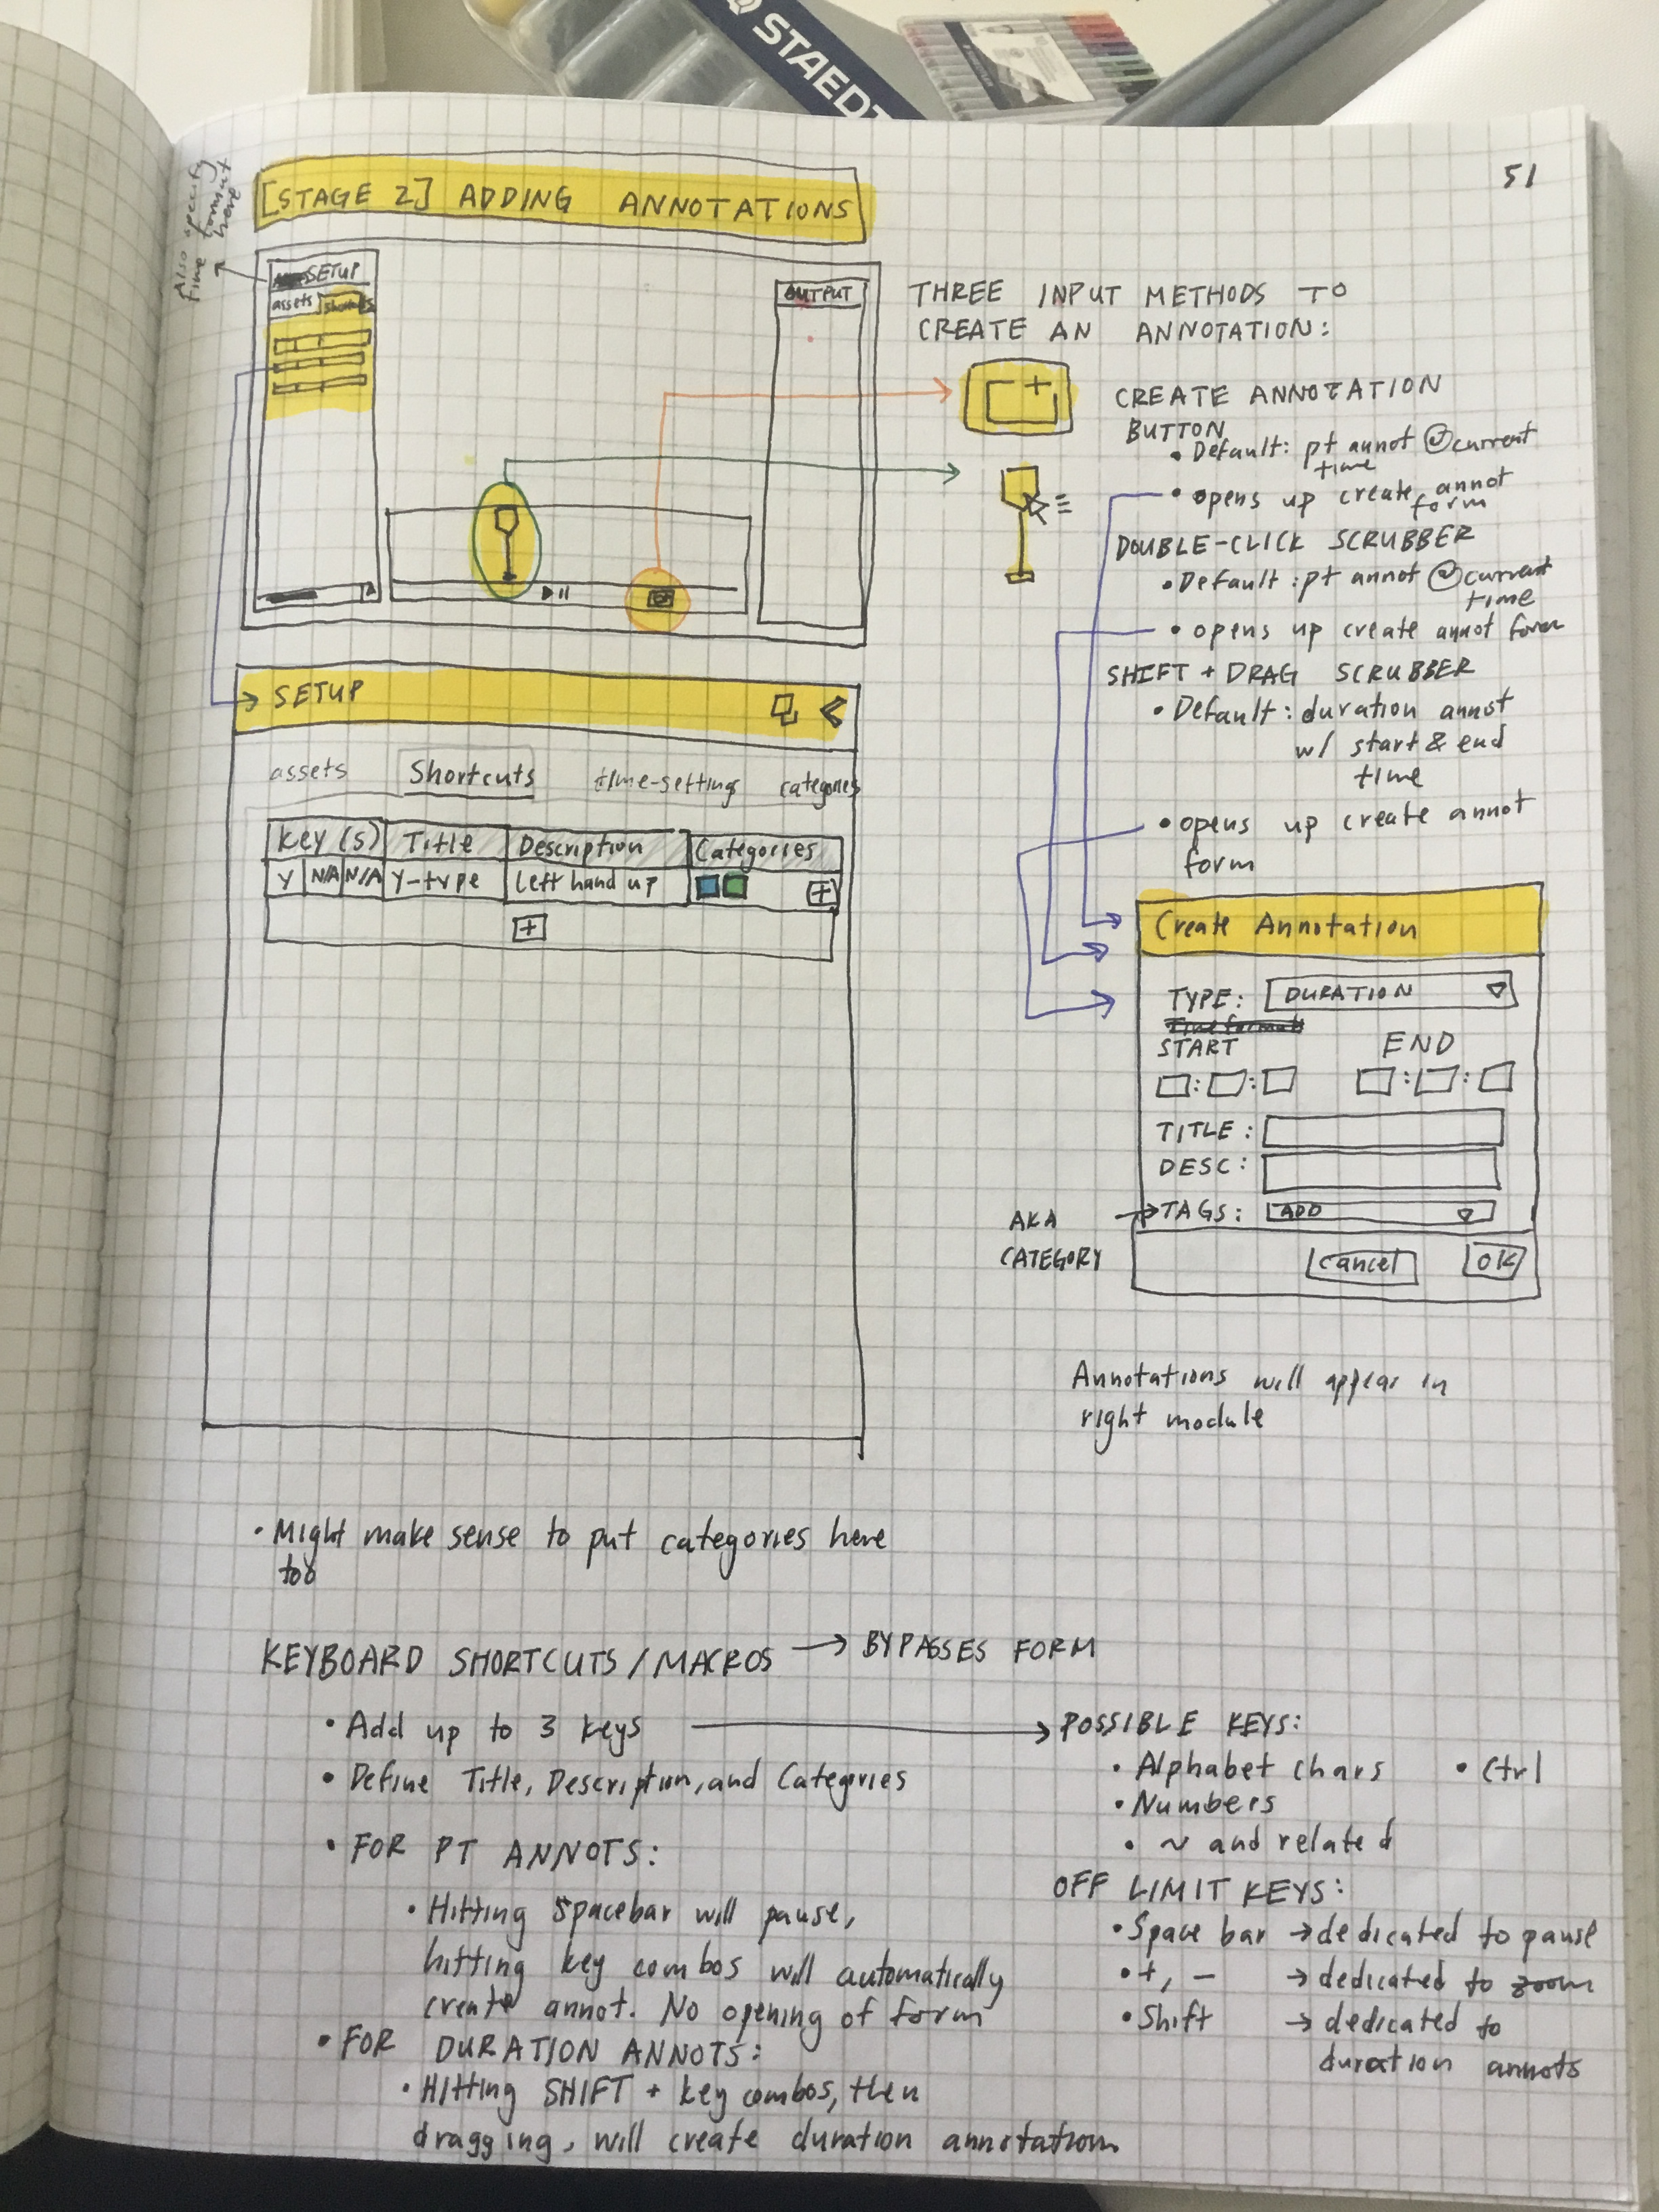 STAEDT
51
Also specify
time format
here
[STAGE 2] ADDING ANNOTATIONS
SETUP
assets
OUTPUT
THREE INPUT METHODS TO
CREATE AN ANNOTATION:
CREATE ANNOTATION
BUTTON
• Default: pt annot @current
time
• opens up create annot
form
DOUBLE-CLICK SCRUBBER
• Default: pt annot @current
time
• opens up create annot form
SHIFT + DRAG SCRUBBER
• Default: duration annot
w/ start & end
time
• opens up create annot
form
SETUP
assets Shortcuts time-setting categories
Key(s) Title Description Categories
Y N/A N/A Y-type Left hand up +
+
Create Annotation
TYPE: DURATION
Time format
START END
: : : :
TITLE:
DESC:
TAGS: ADD
AKA
CATEGORY
Cancel OK
Annotations will appear in
right module
• Might make sense to put categories here
too
KEYBOARD SHORTCUTS/MACROS → BYPASSES FORM
• Add up to 3 keys
• Define Title, Description, and Categories
• FOR PT ANNOTS:
• Hitting spacebar will pause,
hitting key combos will automatically
create annot. No opening of form
• FOR DURATION ANNOTS:
• Hitting SHIFT + key combos, then
dragging, will create duration annotation
POSSIBLE KEYS:
• Alphabet chars • Ctrl
• Numbers
• ~ and related
OFF LIMIT KEYS:
• Space bar → dedicated to pause
• +, - → dedicated to zoom
• Shift → dedicated to
duration annots